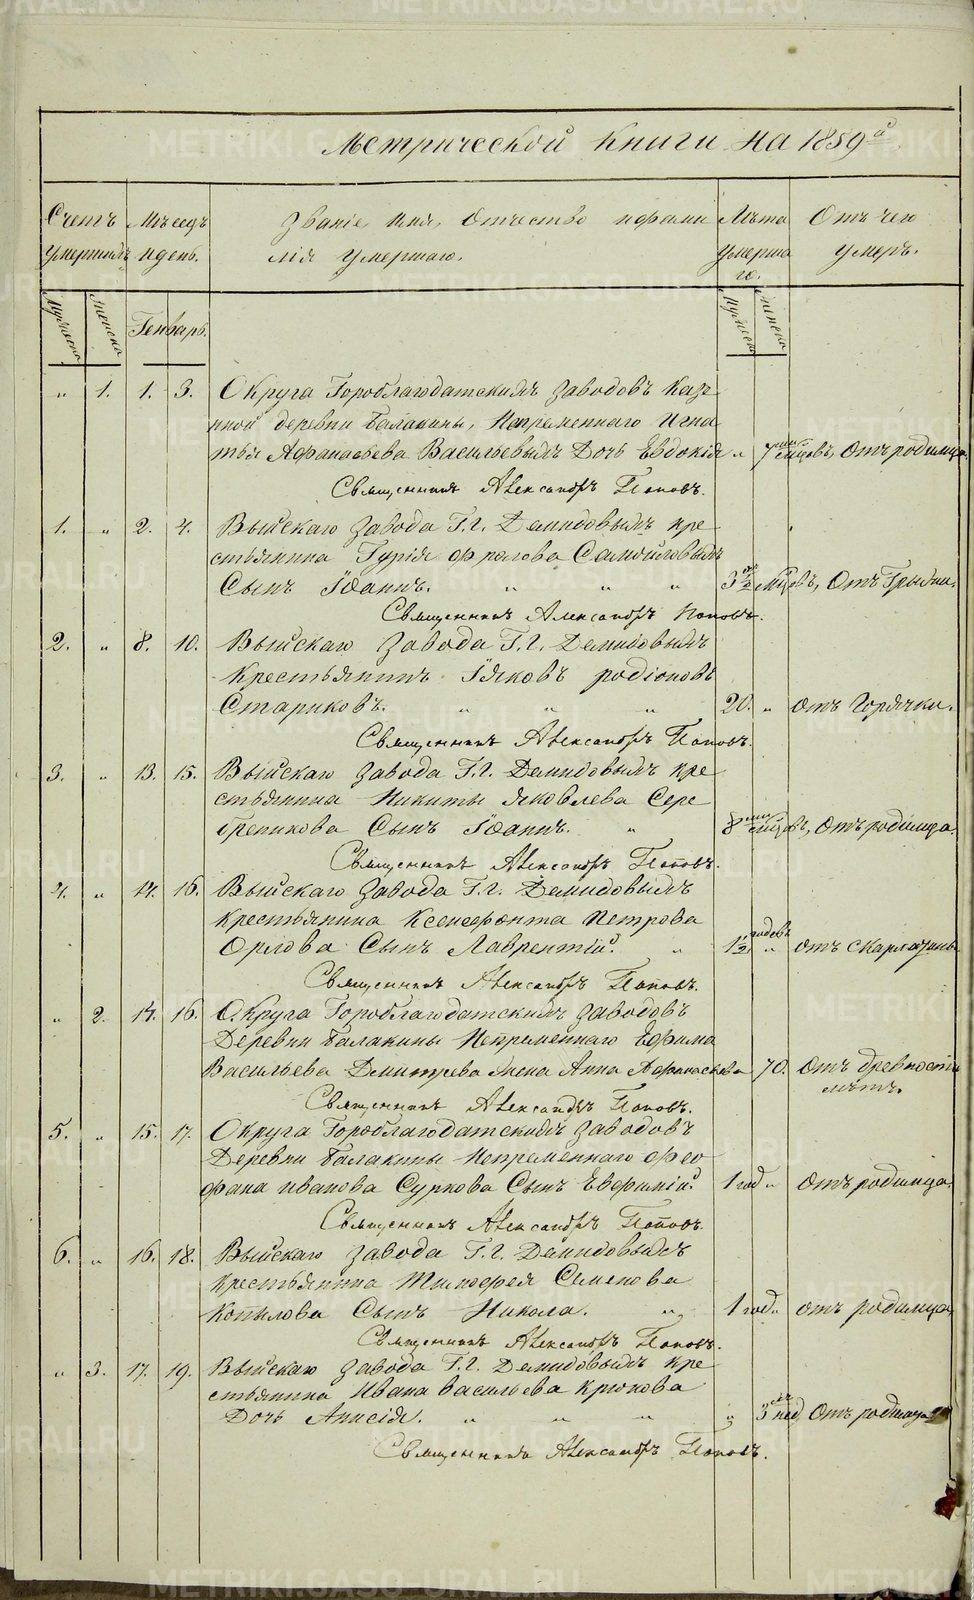 METRIKI.GASO-URAL.RU
Метрической книги на 1859ᵈ
Счетъ умершихъ
Мѣсецъ и день.
Званіе имя, отчество и фами
лія умершаго.
Лѣта умерша го.
Отъ чего умеръ.
Мужеска
Женска
Генварь.
Мужеск
Женска
" 1. 1. 3. Округа Гороблагодатскихъ заводовъ Каз
ной деревни Балакины, Непременнаго Игна
тья Афанасьева Васильевыхъ Дочь Евдокія " 7ми мѣсцовъ, Отъ родимца.
Священникъ Александръ Поповъ.
1. " 2. 4. Выйскаго Завода Г.г. Демидовыхъ кре
стьянина Гурія Фролова Самойловыхъ
Сынъ Іоаннъ. " " " 3 мѣсцовъ, Отъ Грыжи.
Священникъ Александръ Поповъ.
2. " 8. 10. Выйскаго Завода Г.г. Демидовыхъ
Крестьянинъ Іяковъ родіоновъ
Стариковъ. " " " 20. " отъ Горячки.
Священникъ Александръ Поповъ.
3. " 13. 15. Выйскаго Завода Г.г. Демидовыхъ кре
стьянина Никиты Яковлева Сере
бреникова Сынъ Іоаннъ. " 8ми мѣсцовъ, Отъ родимца.
Священникъ Александръ Поповъ.
4. " 14. 16. Выйскаго Завода Г.г. Демидовыхъ
Крестьянина Ксенофонта Петрова
Орлова Сынъ Лаврентій. " 1½ годовъ " отъ скарлатины
Священникъ Александръ Поповъ.
" 2. 14. 16. Округа Гороблагодатскихъ заводовъ
Деревни Балакины Непременнаго Ефима
Васильева Дмитрева Жена Анна Афонасьева 70. Отъ древности
лѣтъ.
Священникъ Александръ Поповъ.
5. " 15. 17. Округа Гороблагодатскихъ заводовъ
Деревни Балакины Непременнаго Фео
фана Иванова Суркова Сынъ Евфимій. 1 год " Отъ родимца.
Священникъ Александръ Поповъ.
6. " 16. 18. Выйскаго Завода Г.г. Демидовыхъ
Крестьянина Тимофея Семенова
Копылова Сынъ Никола. " 1 год " отъ родимца,
Священникъ Александръ Поповъ.
" 3. 17. 19. Выйскаго Завода Г.г. Демидовыхъ кре
стьянина Ивана Васильева Крюкова
Дочь Анисія. " " " " 3 нед Отъ родимца
Священникъ Александръ Поповъ.
METRIKI.GASO-URAL.RU